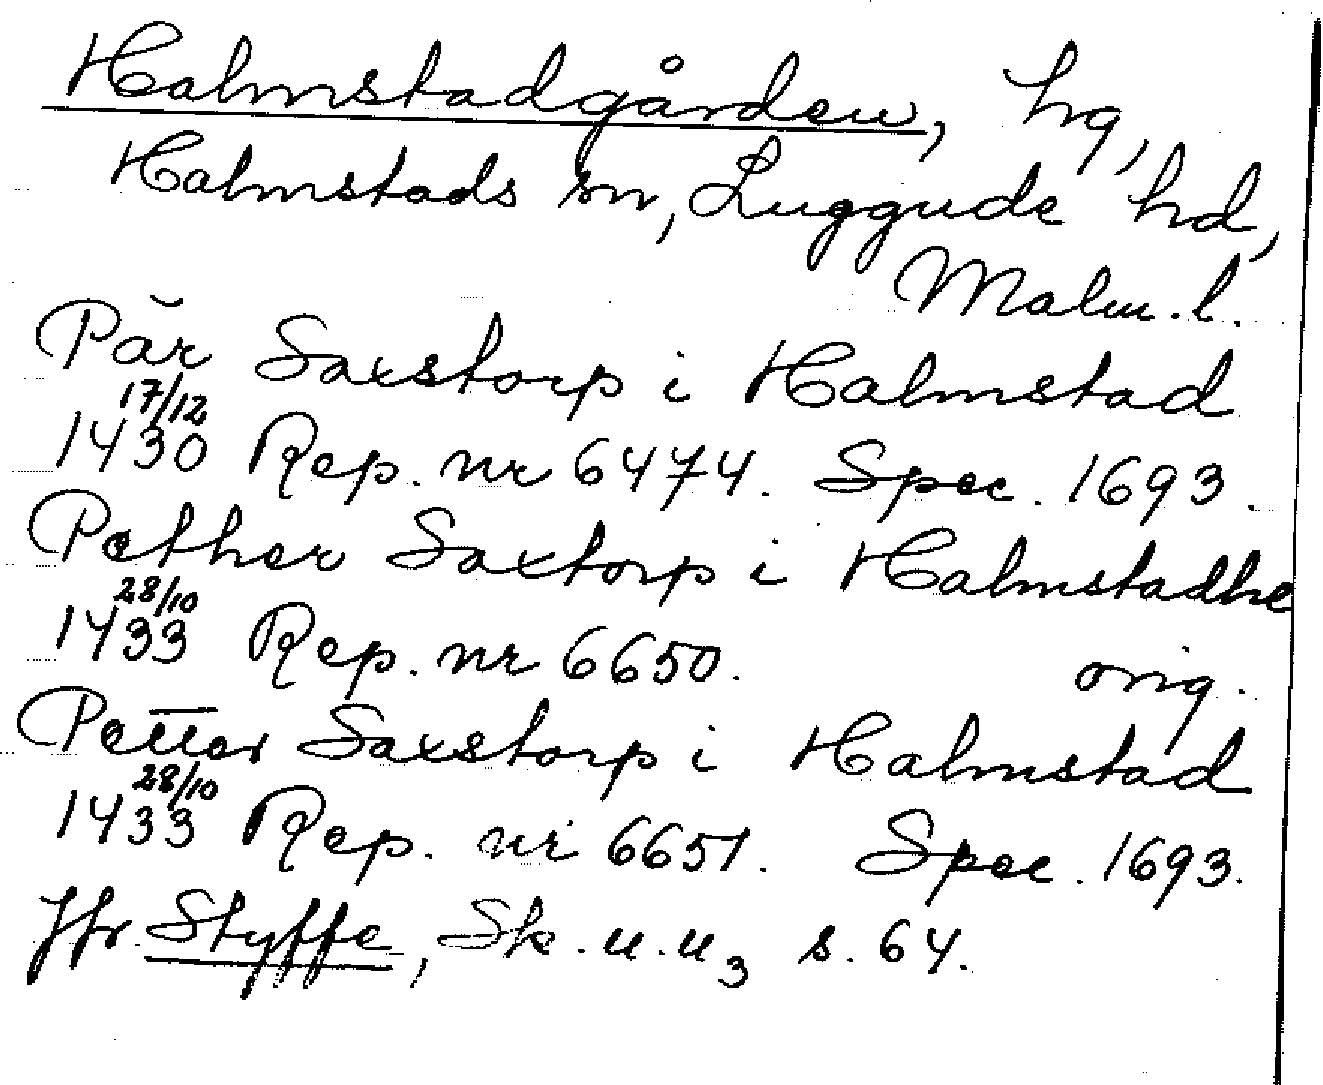 Halmstadgården, hg,
Halmstads sn, Luggude hd,
Malm. l.
Păr Saxstorp i Halmstad
17/12
1430 Rep. nr 6474. Spec. 1693.
Pether Saxtorp i Halmstadhe
28/10
1433 Rep. nr 6650. orig.
Petter Saxstorp i Halmstad
28/10
1433 Rep. nr 6651. Spec. 1693.
Jfr Styffe, Sk. u. u3 s. 64.